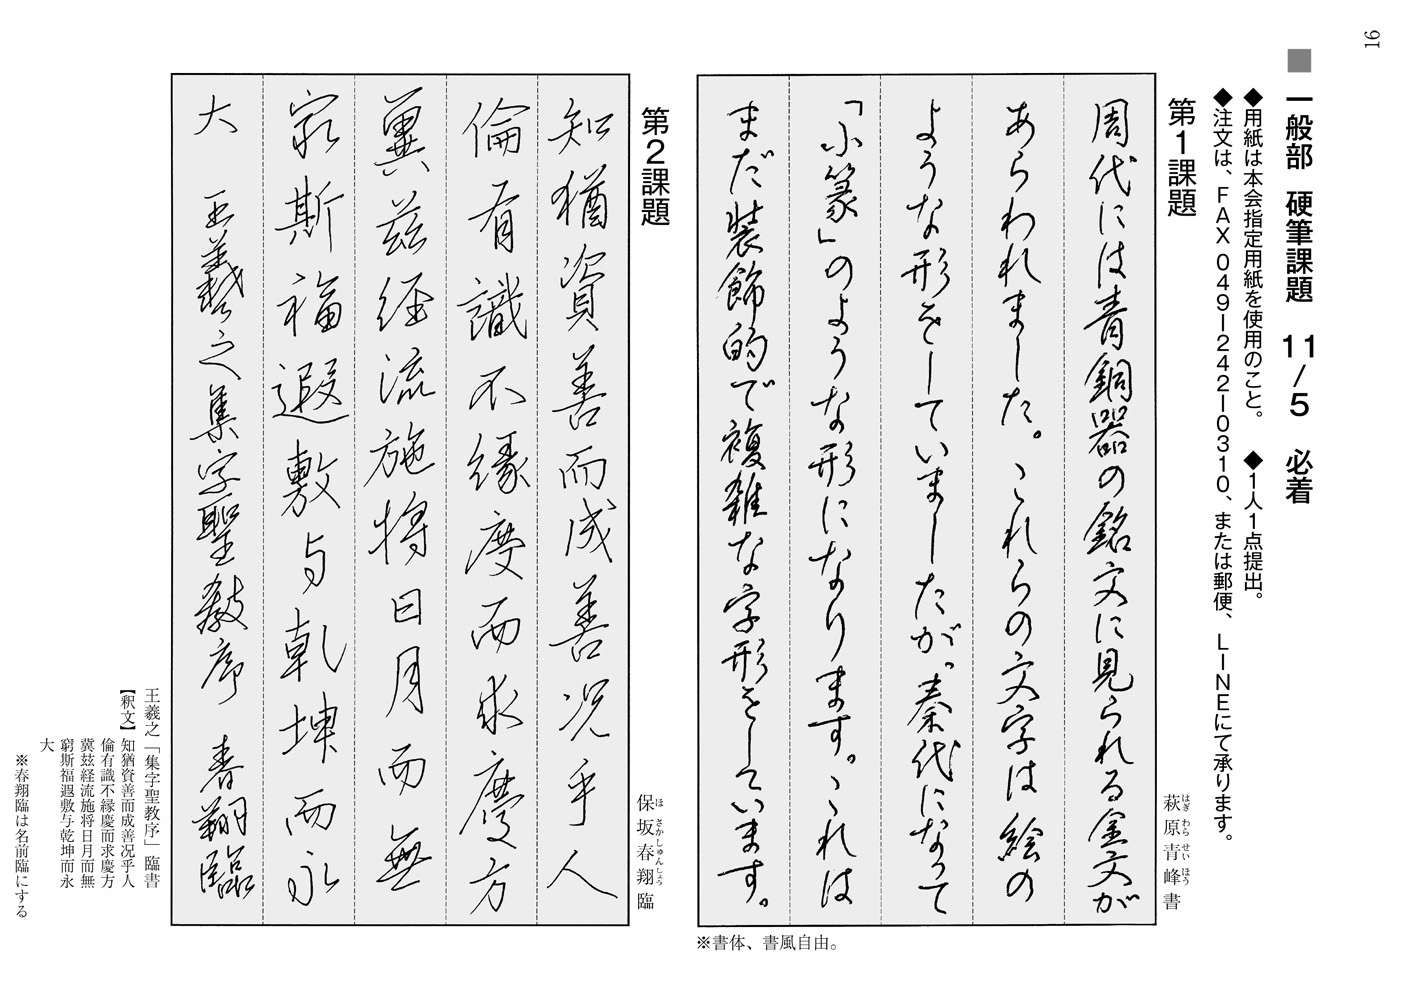 16
■ 一般部 硬筆課題 11/5 必着
◆用紙は本会指定用紙を使用のこと。 ◆1人1点提出。
◆注文は、FAX 049-242-0310、または郵便、LINEにて承ります。
第1課題
萩原青峰書
はぎわらせいほう
周代には青銅器の銘文に見られる金文が
あらわれました。これらの文字は絵の
ような形をしていましたが、秦代になって
「小篆」のような形になります。これは
まだ装飾的で複雑な字形をしています。
※書体、書風自由。
第2課題
保坂春翔臨
ほさかしゅんしょう
知猶資善而成善况乎人
倫有識不縁慶而求慶方
冀茲経流施将日月而無
窮斯福遐敷与乾坤而永
大 王羲之集字聖教序 春翔臨
王羲之「集字聖教序」臨書
【釈文】知猶資善而成善况乎人
倫有識不縁慶而求慶方
冀玆経流施将日月而無
窮斯福遐敷与乾坤而永
大
※春翔臨は名前臨にする